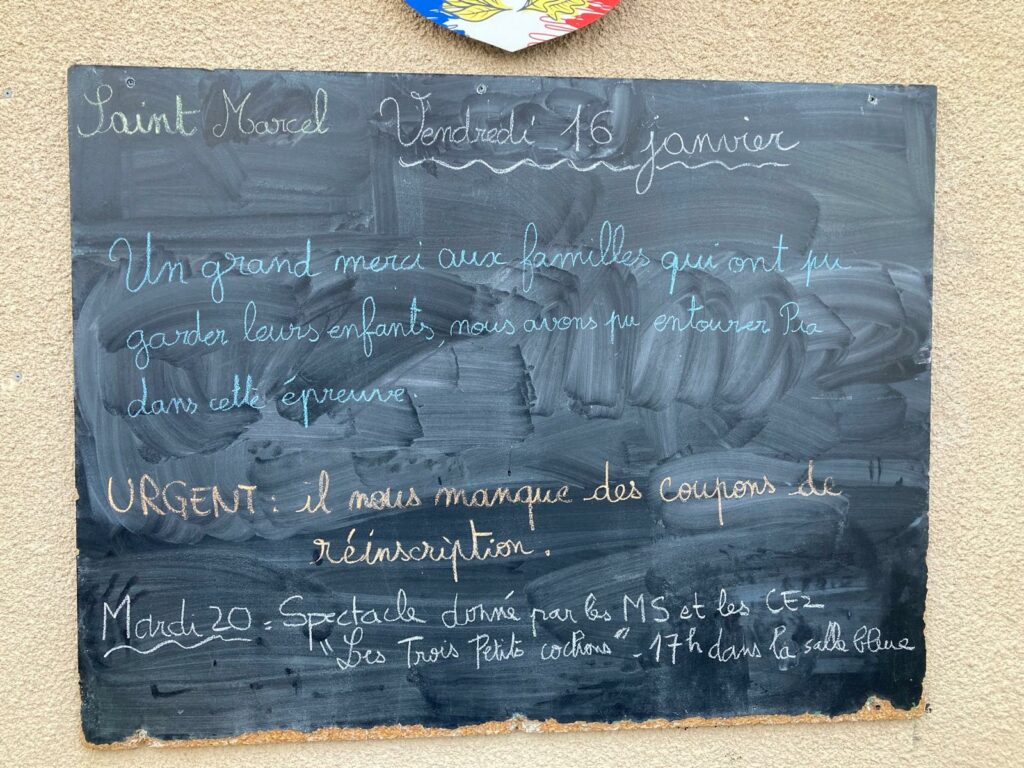 Saint Marcel
Vendredi 16 janvier
Un grand merci aux familles qui ont pu
garder leurs enfants, nous avons pu entourer Pia
dans cette épreuve.
URGENT : il nous manque des coupons de
réinscription.
Mardi 20 = Spectacle donné par les MS et les CE2
"Les Trois Petits cochons" - 17h dans la salle bleue